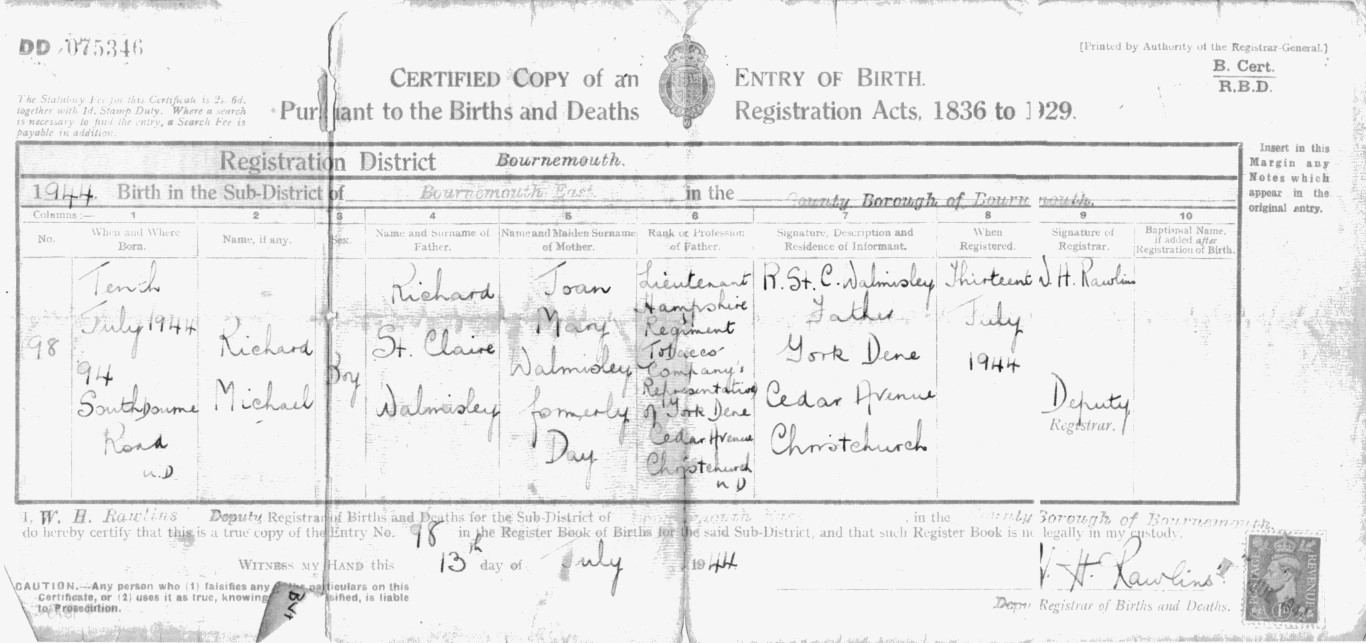 DD 075346
[Printed by Authority of the Registrar-General.]
B. Cert.
R.B.D.
The Statutory Fee for this Certificate is 2s. 6d.
together with 1d. Stamp Duty. Where a search
is necessary to find the entry, a Search Fee is
payable in addition.
CERTIFIED COPY of an ENTRY OF BIRTH.
Pursuant to the Births and Deaths Registration Acts, 1836 to 1929.
Insert in this
Margin any
Notes which
appear in the
original entry.
Registration District Bournemouth.
1944. Birth in the Sub-District of Bournemouth East in the County Borough of Bournemouth.
Columns:— 1 2 3 4 5 6 7 8 9 10
No.
When and Where
Born.
Name, if any.
Sex.
Name and Surname of
Father.
Name and Maiden Surname
of Mother.
Rank or Profession
of Father.
Signature, Description and
Residence of Informant.
When
Registered.
Signature of
Registrar.
Baptismal Name,
if added after
Registration of Birth.
98
Tenth
July 1944
94
Southbourne
Road
U.D
Richard
Michael
Boy
Richard
St. Claire
Walmisley
Joan
Mary
Walmisley
formerly
Day
Lieutenant
Hampshire
Regiment
Tobacco
Company's
Representative
of York Dene
Cedar Avenue
Christchurch
U D
R. St. C. Walmisley
Father
York Dene
Cedar Avenue
Christchurch
Thirteenth
July
1944
W. H. Rawlins
Deputy
Registrar.
I, W. H. Rawlins Deputy Registrar of Births and Deaths for the Sub-District of Bournemouth East, in the County Borough of Bournemouth,
do hereby certify that this is a true copy of the Entry No. 98 in the Register Book of Births for the said Sub-District, and that such Register Book is now legally in my custody.
WITNESS MY HAND this 13th day of July 1944
W. H. Rawlins
Deputy Registrar of Births and Deaths.
CAUTION.—Any person who (1) falsifies any of the particulars on this
Certificate, or (2) uses it as true, knowing it to be falsified, is liable
to Prosecution.
POSTAGE
REVENUE